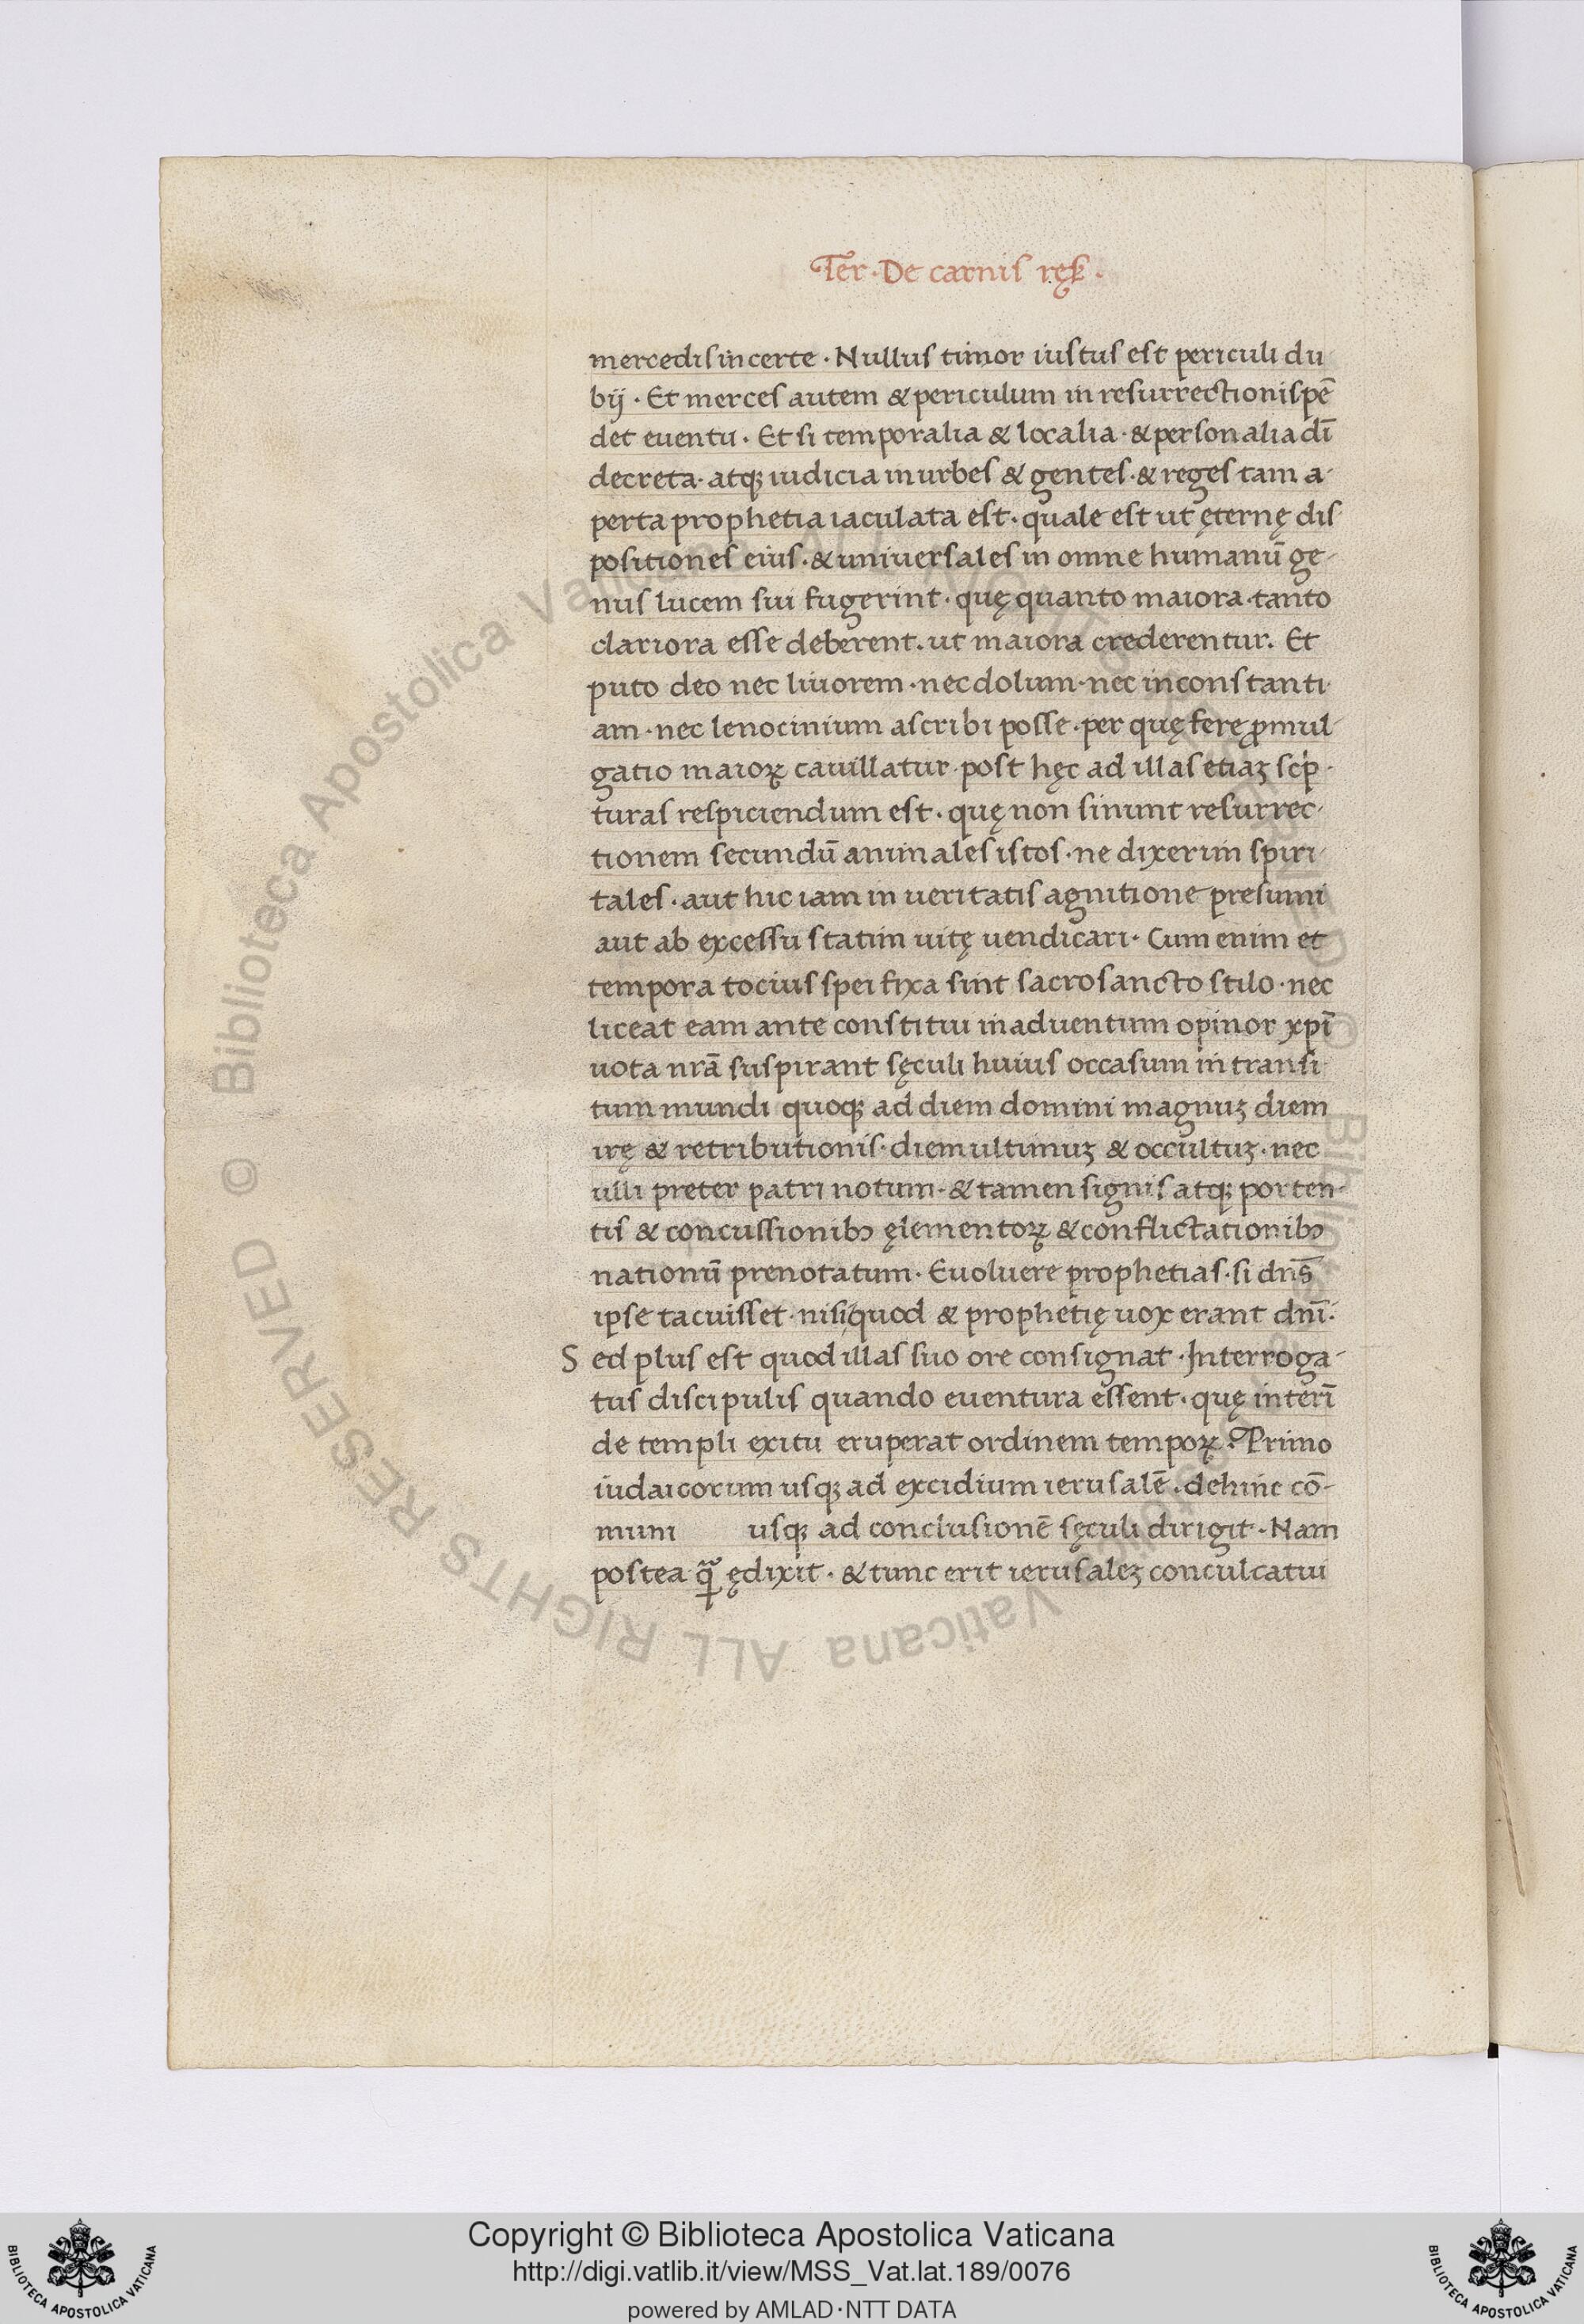 Ter · De carnis ręẜ ·
mercedis incerte · Nullus timor iustus est periculi du
bij · Et merces autem & periculum in resurrectionis pē
det euentu · Et si temporalia & localia · & personalia dī
decreta · atqꝫ iudicia in urbes & gentes · & reges tam a-
perta prophetia iaculata est · quale est ut ęternę dis
positiones eius · & uniuersales in omne humanū ge-
nus lucem sui fugerint · quę quanto maiora · tanto
clariora esse deberent · ut maiora crederentur. Et
puto deo nec liuorem · nec dolum · nec inconstanti-
am · nec lenocinium ascribi posse · per quę fere ꝓmul-
gatio maioꝝ cauillatur · post hęc ad illas etiaꝫ scṗ-
turas respiciendum est · quę non sinunt resurrec-
tionem secundū animales istos · ne dixerim spiri-
tales · aut hic iam in ueritatis agnitione presumi
aut ab excessu statim uitę uendicari · Cum enim et
tempora tocius spei fixa sint sacrosancto stilo · nec
liceat eam ante constitui in aduentum opinor xp̄i
uota nrā suspirant sęculi huius occasum in transi-
tum mundi quoqꝫ ad diem domini magnuꝫ diem
irę & retributionis · diem ultimuꝫ & occultuꝫ · nec
ulli preter patri notum · & tamen signis atqꝫ porten-
tis & concussionibꝫ ęlementoꝝ & conflictationibꝫ
nationū prenotatum · Euoluere prophetias · si dns̄
ipse tacuisset · nisi quod & prophetię uox erant dnī ·
Sed plus est quod illas suo ore consignat · Interroga-
tus discipulis quando euentura essent · quę interī
de templi exitu eruperat ordinem tempoꝝ · Primo
iudaicorum usqꝫ ad excidium ierusalē · dehinc cō-
muni usqꝫ ad conclusionē sęculi dirigit · Nam
postea ꝗ̄ ędixit · & tunc erit ierusaleꝫ conculcatui
© Biblioteca Apostolica Vaticana ALL RIGHTS RESERVED © Biblioteca Apostolica Vaticana ALL RIGHTS RESERVED
Copyright © Biblioteca Apostolica Vaticana
http://digi.vatlib.it/view/MSS_Vat.lat.189/0076
powered by AMLAD·NTT DATA
BIBLIOTECA APOSTOLICA VATICANA
BIBLIOTECA APOSTOLICA VATICANA